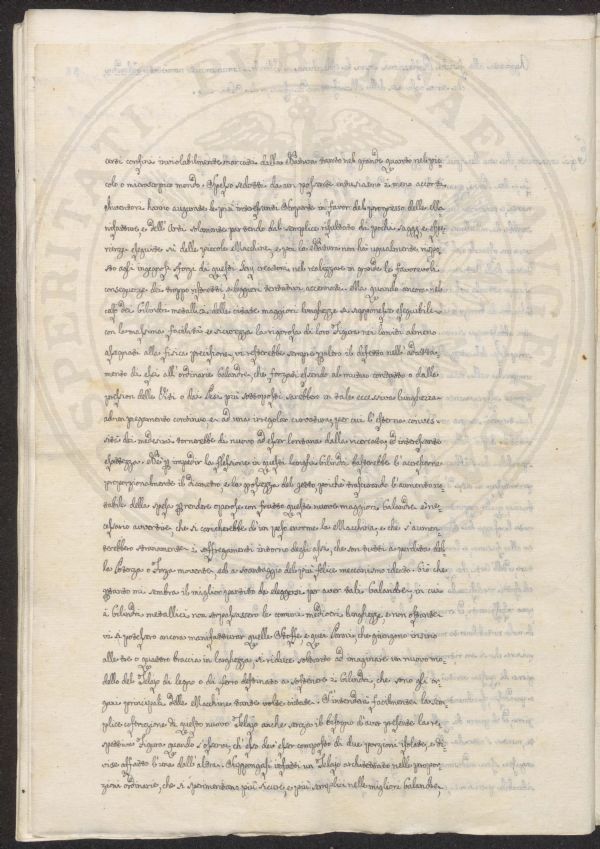 certi confini inviolabilmente marcati dalla Natura tanto nel grande quanto nel pic-
colo o macroscopico mondo. Spesso sedotti da un possente entusiasmo i meno accorti
Inventori hanno augurate le più interessanti scoperte in favor del progresso delle Ma-
nifatture e dell'Arti solamente partendo dal semplice risultato di poche saggie espe-
rienze eseguite sù delle piccole Macchine, e poi la Natura non ha ugualmente rispo-
sto agli ingegnosi sforzi di questi Soy creatori nel realizzare in grande le favorevoli
conseguenze dei troppo ristretti, e leggieri tentativi accennati. Ma quando ancora nel
caso dei Cilindri metallici delle citate maggiori lunghezze si supponesse eseguibile
con la massima facilità e sicurezza la rigorosa di loro Figura nei limiti almeno
assegnati alla fisica precisione, vi resterebbe sempre il difetto nell'adatta-
mento di essi all'ordinarie Calandre, che forzati essendo al mutuo contatto o dalle
pression delle Viti o dai Pesi più sottoposti sarebbero in tale eccessiva lunghezza
ad un piegamento continuo e ad una irregolar curvatura, per cui l'esterna conves-
sità dei medesimi tornerebbe di nuovo ad esser lontana dalla ricercata, ed interessante
esattezza. Nè per impedir la flessione in questi lunghi Cilindri basterebbe l'accrescerne
proporzionalmente il diametro, e la grossezza del getto, poichè trascurando l'aumento no-
tabile della spesa per rendere operose con frutto queste nuove maggiori Calandre è ne-
cessario avvertire, che si caricherebbe d'un peso enorme la Macchina, e che s'aumen-
terebbero stranamente i soffregamenti intorno degli assi, che son tutti a perdita del-
la Potenza o Forza movente, ed a svantaggio del più felice meccanismo ideato. Ciò che
pertanto mi sembra il miglior partito da eleggersi per aver tali Calandre, in cui
i Cilindri metallici non sorpassassero le comuni mediocri lunghezze, e non ostante
vi si potessero ancora manifatturar quelle Stoffe, e quei Panni, che giungono insino
alle tre o quattro braccia in larghezza, si riduce soltanto ad imaginare un nuovo mo-
dello del Telajo di legno o di ferro destinato a sostenere i Cilindri, che sono gli or-
gani principali delle Macchine tante volte citate. S'intenderà facilmente la sem-
plice costruzione di questo nuovo Telajo anche senza il bisogno d'aver presente la re-
spettiva Figura quando s'osservi, ch'esso dev'esser composto di due porzioni isolate, e di-
vise affatto l'una dall'altra. Suppongasi infatti un Telajo architettato nelle propor-
zioni ordinarie, che si sperimentano più sicure, e più semplici nelle migliori Calandre,